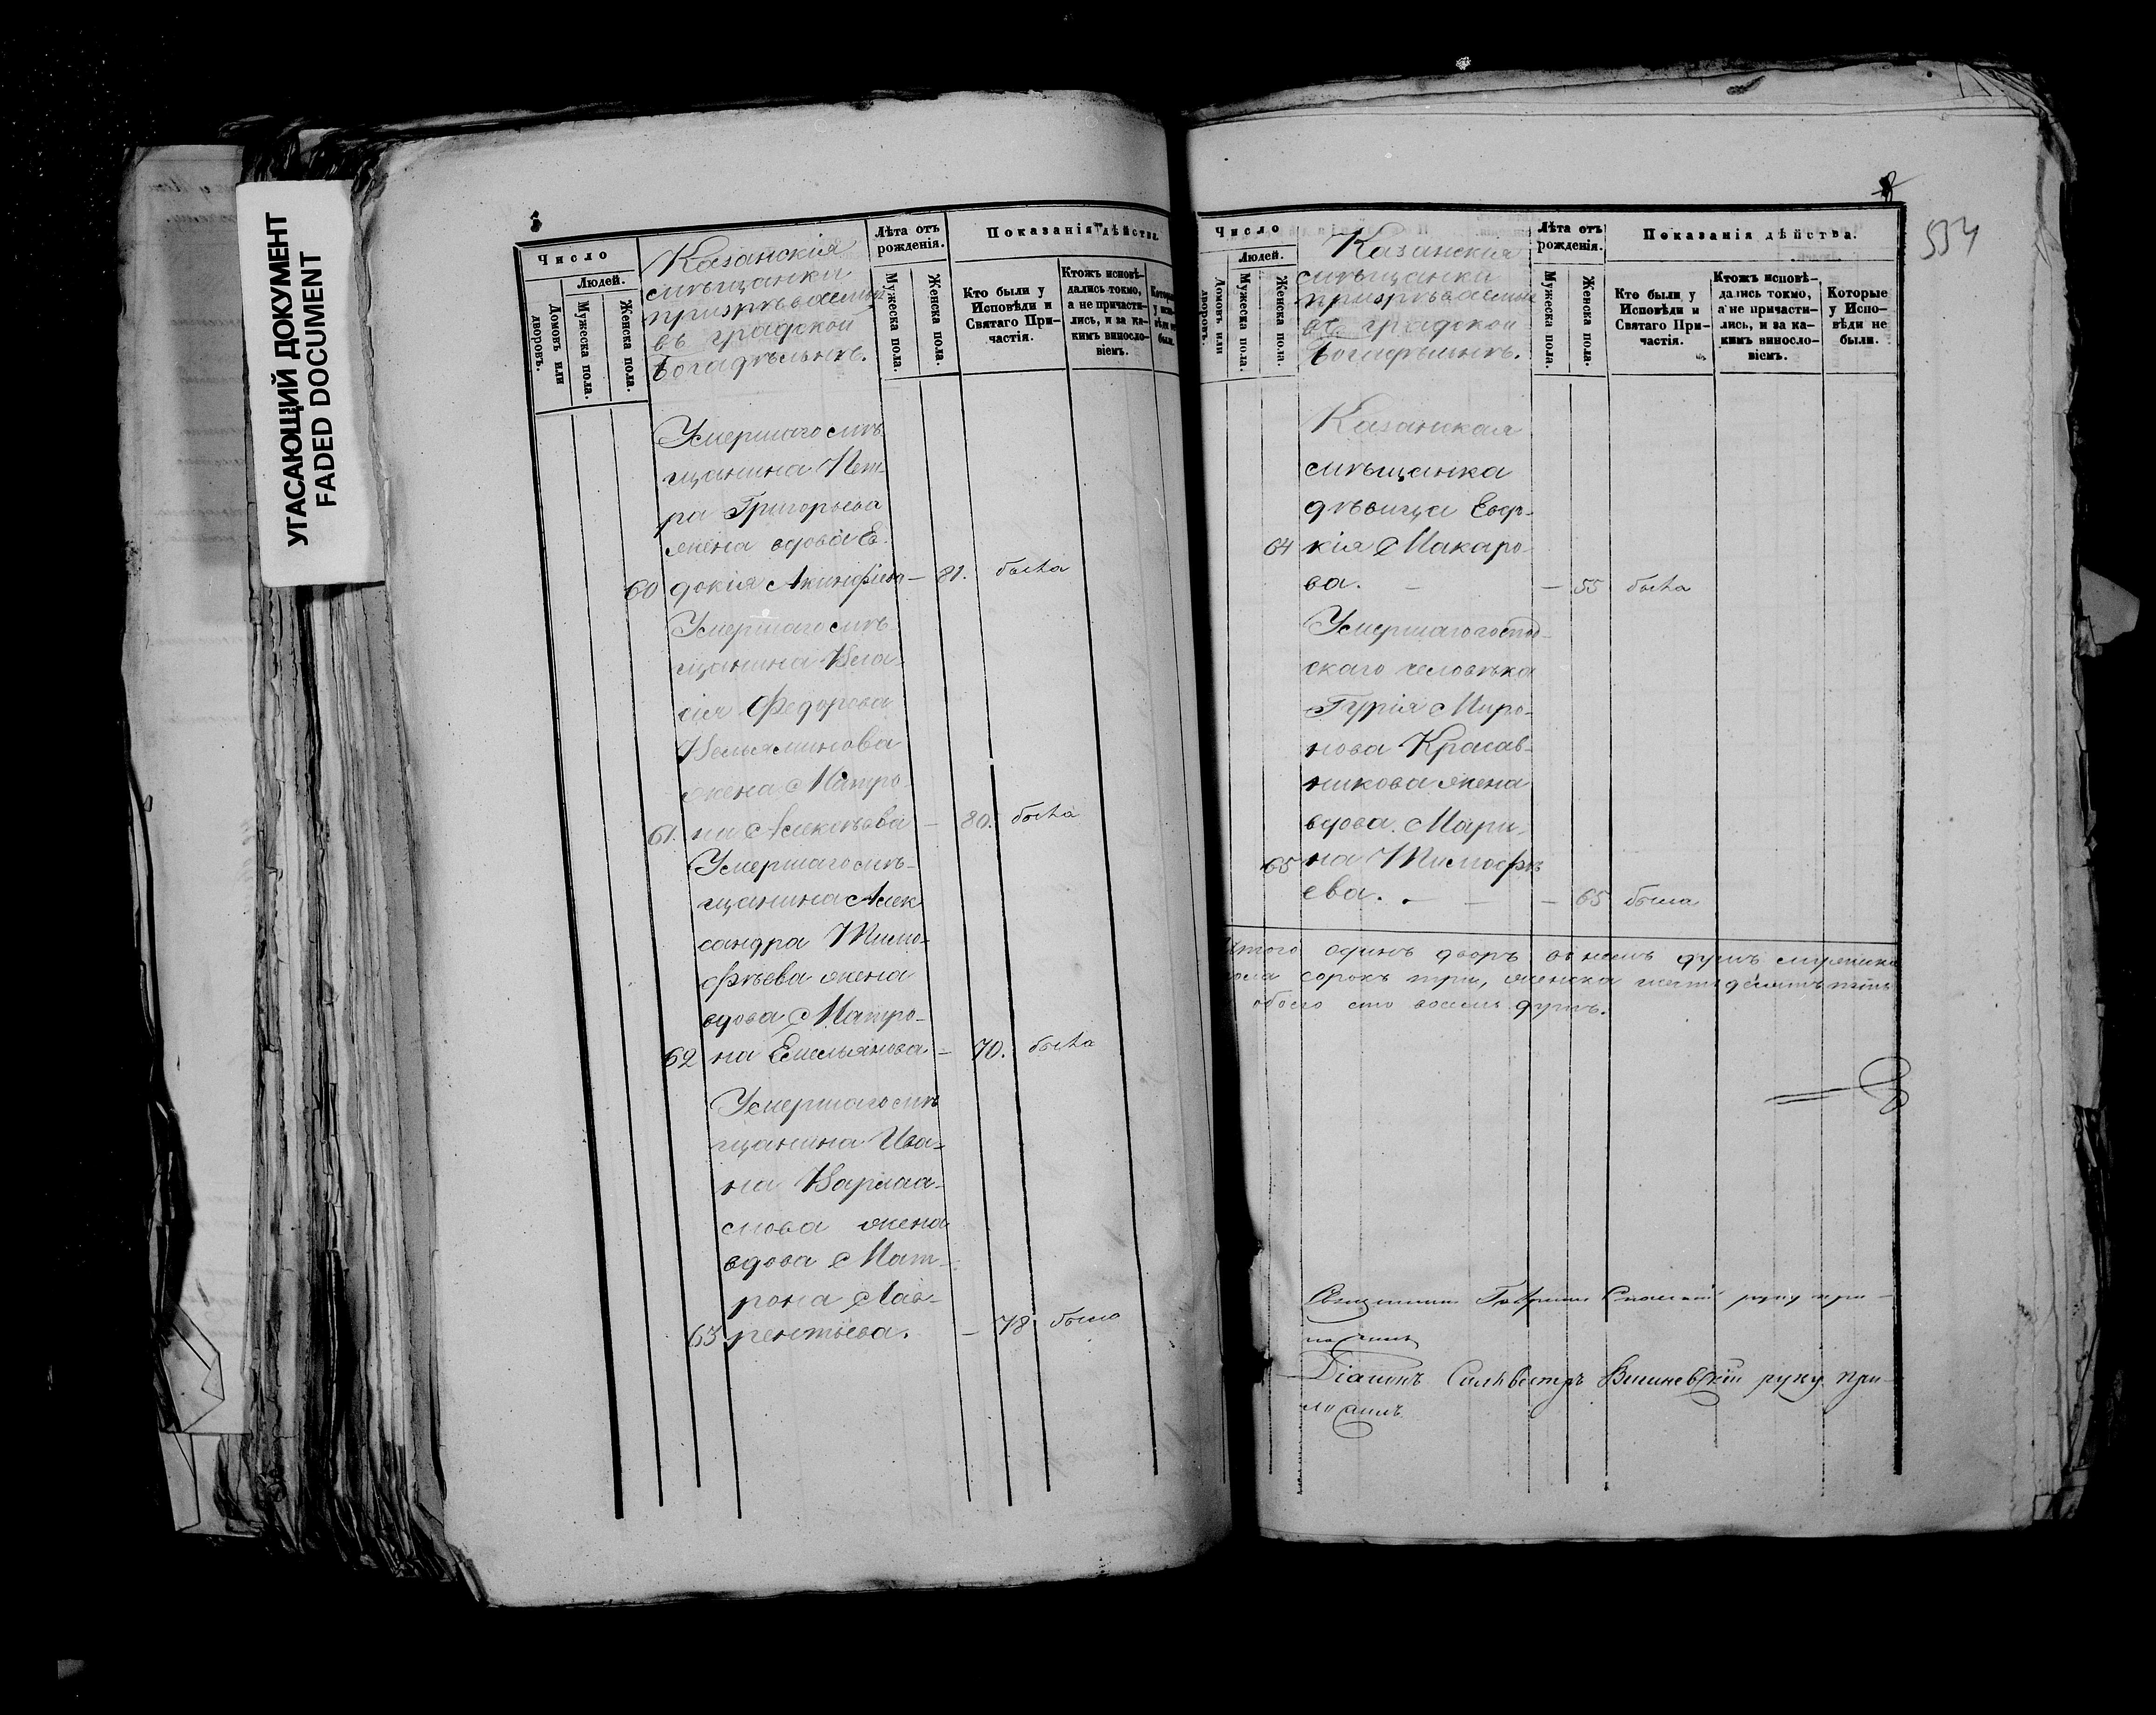 УГАСАЮЩИЙ ДОКУМЕНТ
FADED DOCUMENT
Число
Людей.
Домовъ или дворовъ.
Мужеска пола.
Женска пола.
Казанскія
мѣщанки
призрѣваемыя
въ градской
богадѣльнѣ.
Лѣта отъ рожденія.
Мужеска пола.
Женска пола.
Показанія дѣйства.
Кто были у Исповѣди и Святаго При-
частія.
Ктожъ исповѣ-
дались токмо,
а не причасти-
лись, и за ка-
кимъ винословіемъ.
Умершаго мѣ-
щанина Пет-
ра Григорьева
жена вдова Ев-
60 докія Акинфіева — 81. была
Умершаго мѣ-
щанина Вла-
сія Федорова
Вельяминова
жена Матро-
61. на Алексѣева — 80. была
Умершаго мѣ-
щанина Алек
сандра Тимо-
фѣева жена
вдова Матро-
62 на Емельянова — 70. была
Умершаго мѣ
щанина Ива-
на Варлаа-
мова жена
вдова Мат-
рона Лав-
63 рентьева. — 78 была
534
Число
Людей.
Домовъ или дворовъ.
Мужеска пола.
Женска пола.
Казанскія
мѣщанки
призрѣваемыя
въ градской
богадѣльнѣ.
Лѣта отъ рожденія.
Мужеска пола.
Женска пола.
Показанія дѣйства.
Кто были у
Исповѣди и
Святаго При-
частія.
Ктожъ исповѣ-
дались токмо,
а не причасти-
лись, и за ка-
кимъ винословіемъ.
Которые
у Испо-
вѣди не
были.
Казанская
мѣщанка
дѣвица Евдо-
64 кія Макаро-
ва. — — 55 была
Умершаго господ-
скаго человѣка
Гурія Миро-
нова Красав-
никова жена
вдова Мари-
65 на Тимофѣ
ева. — — — 65 была
Итого одинъ дворъ въ немъ душъ мужеска
пола сорокъ три, женска шестьдесятъ пять
обоего сто восемь душъ.
Священникъ Гавріилъ руку при-
ложилъ
Діаконъ Сильвестръ Вишневскій руку при-
ложилъ